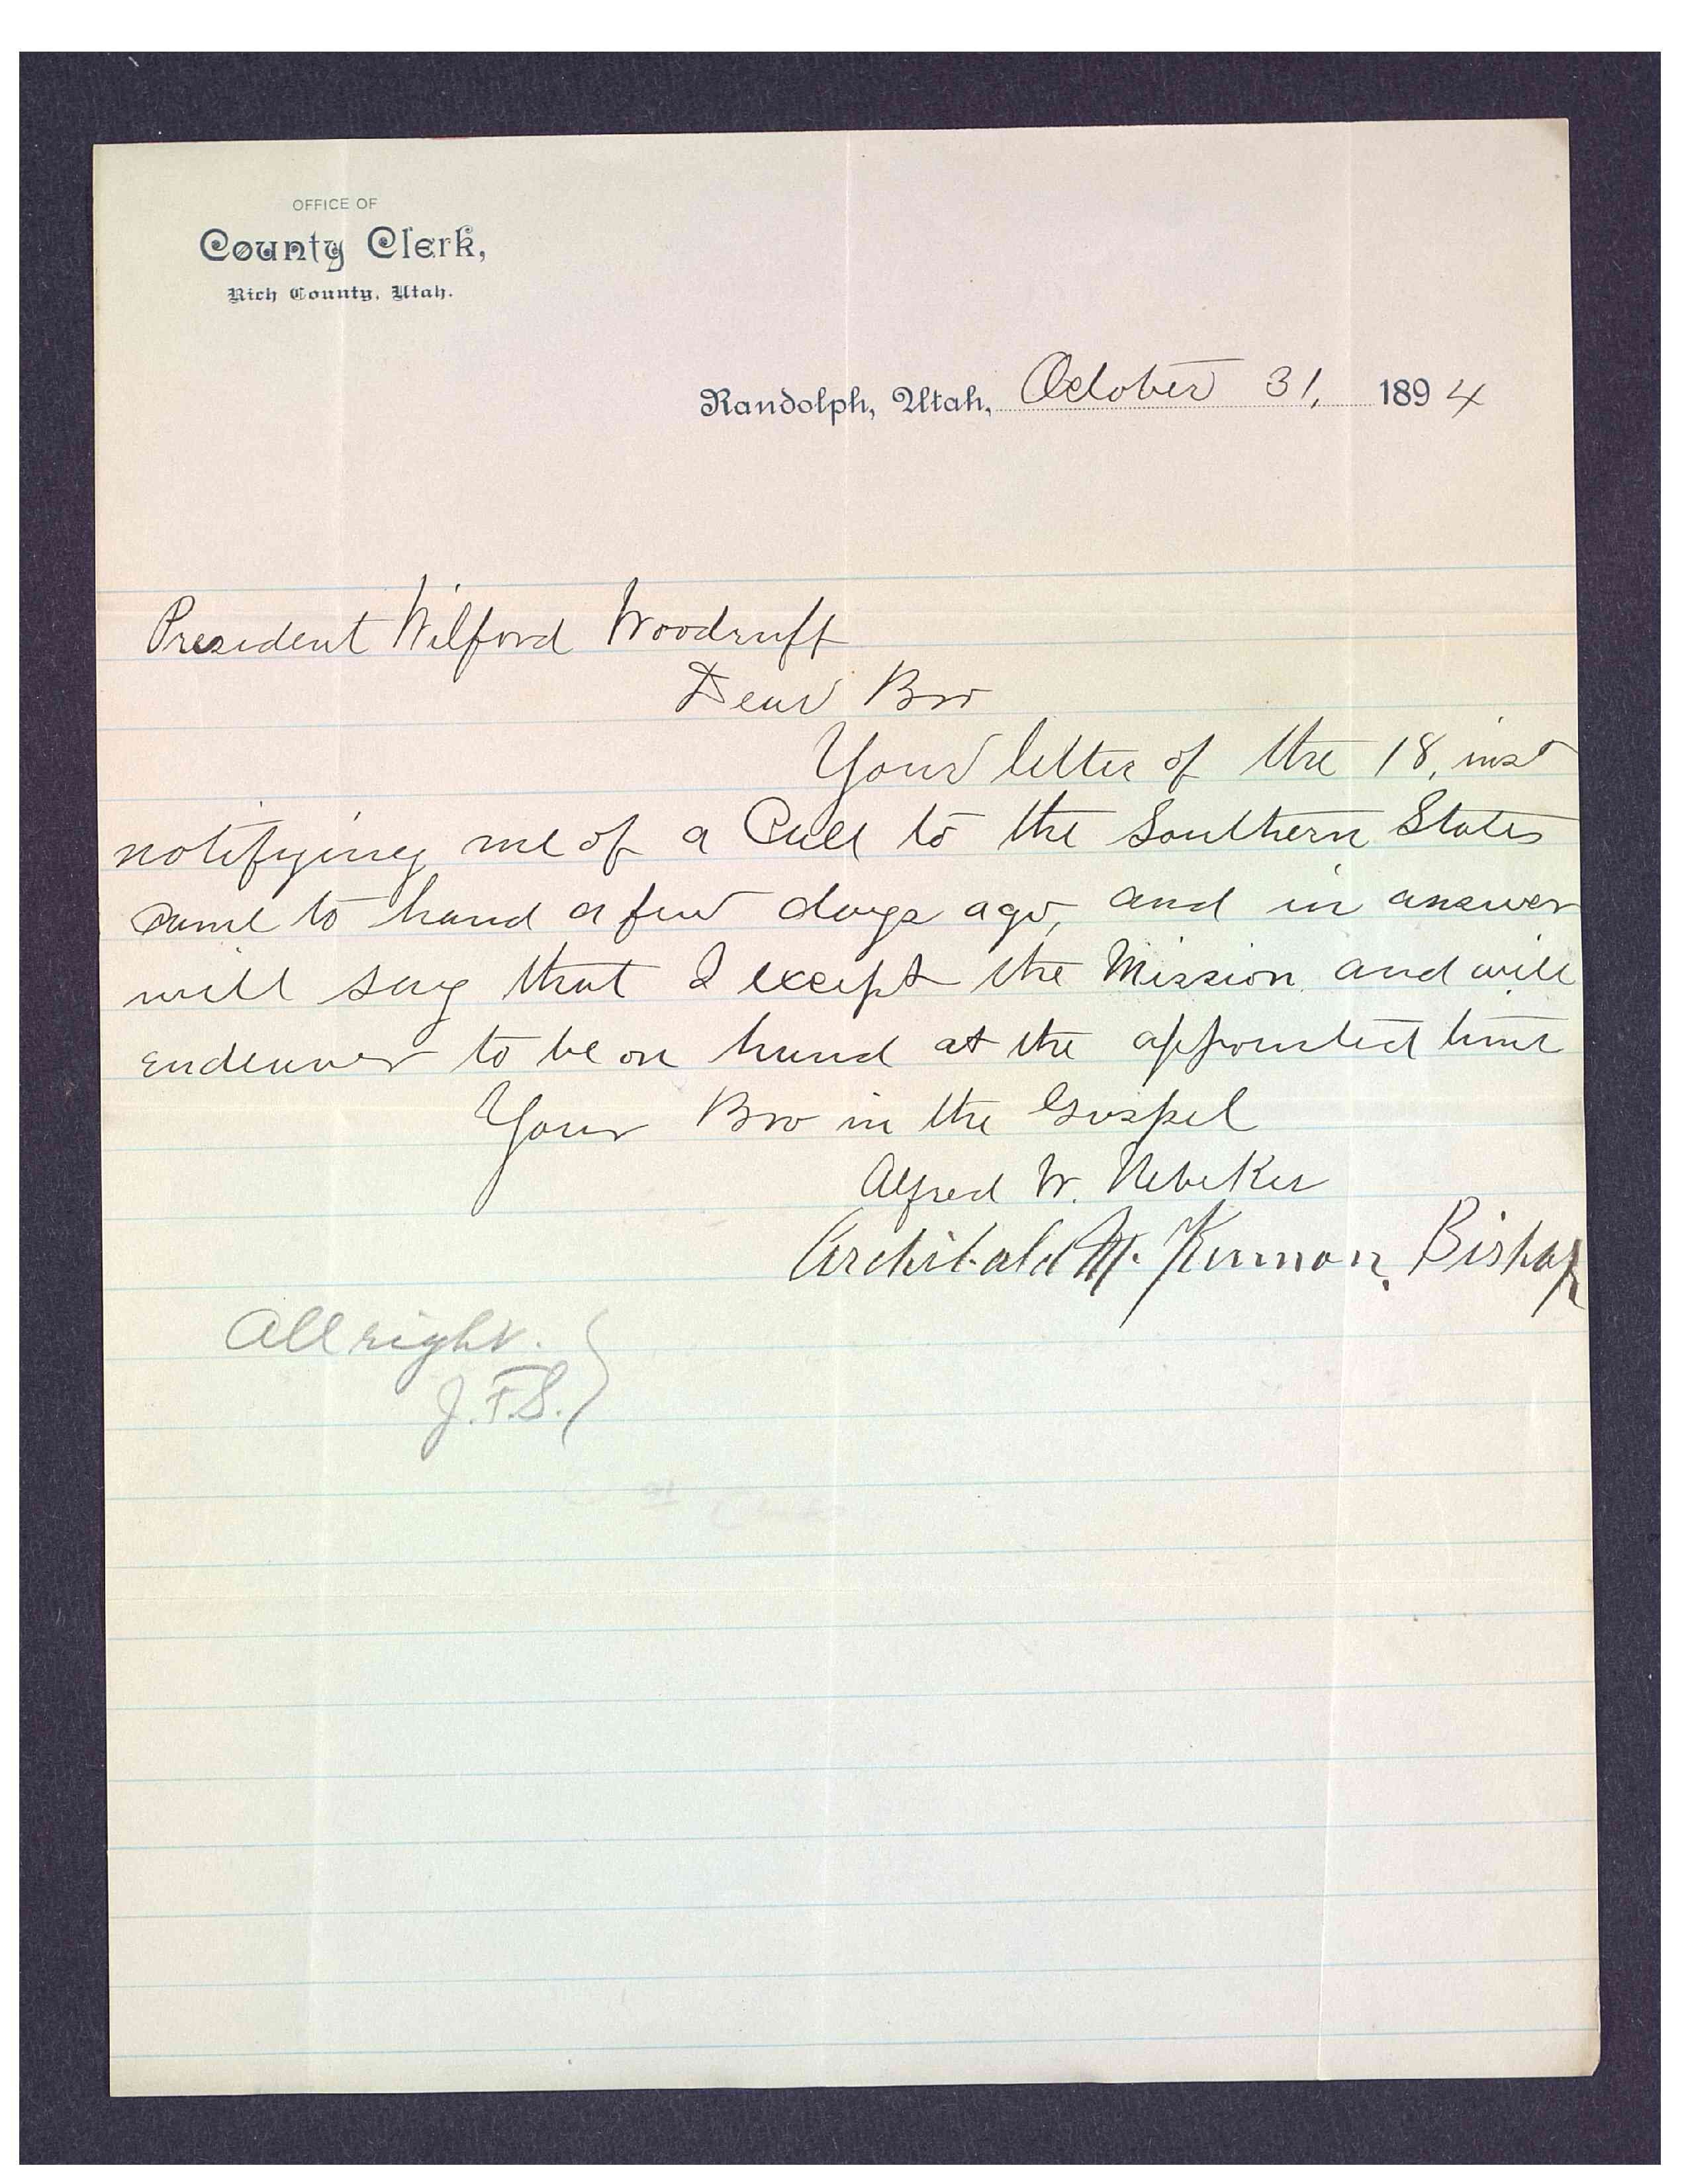 OFFICE OF
County Clerk,
Rich County, Utah.
Randolph, Utah, October 31, 1894
President Wilford Woodruff
Dear Bro
Your letter of the 18, inst
notifying me of a Call to the Southern States
came to hand a few days ago, and in answer
will say that I except the Mission and will
endeaver to be on hand at the appointed time
Your Bro in the Gospel
Alfred W. Nebeker
Archibald Mc Kinnon, Bishop
All right.
J.F.S.